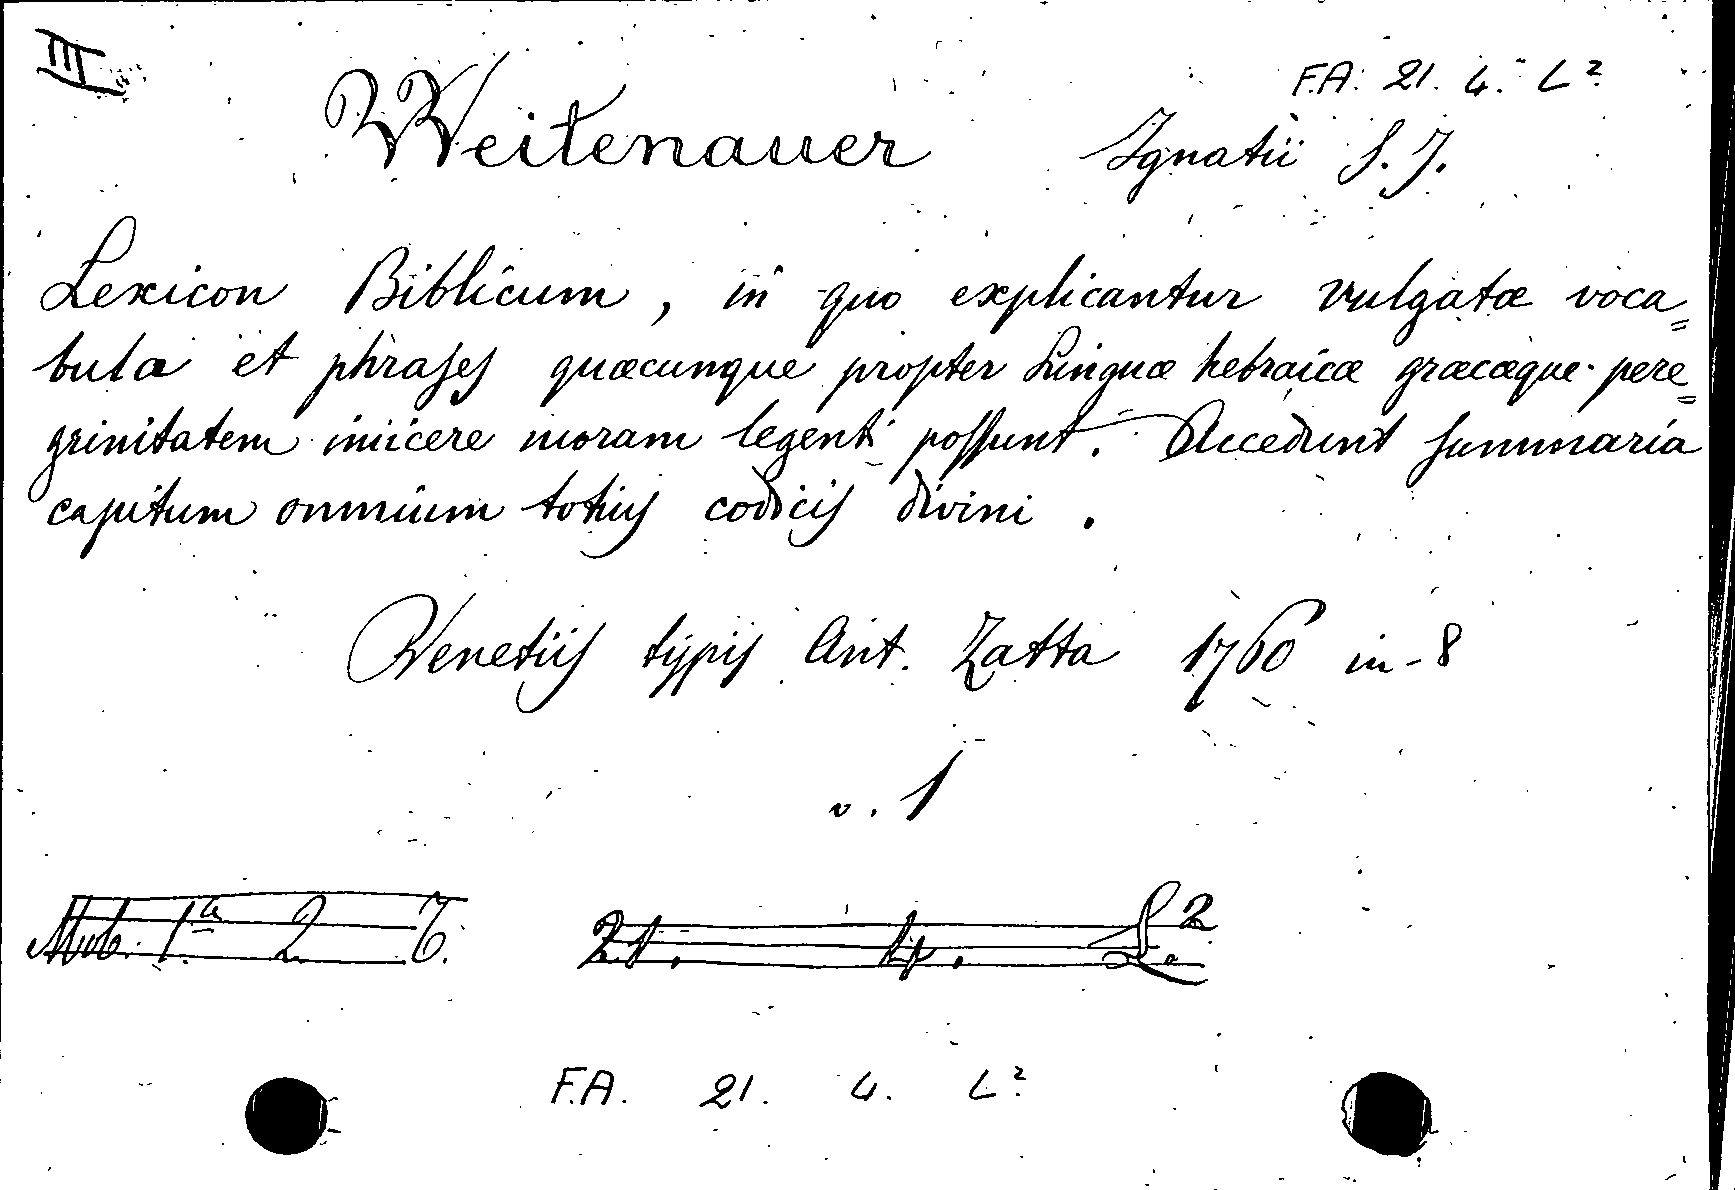 III
F.A. 21. 4. L²
Weitenauer Ignatii S. J.
Lexicon Biblicum, in quo explicantur vulgatæ voca=
bula et phrases quæcunque propter Linguæ hebraicæ græcæque pere=
grinitatem iniicere moram legenti possunt. Accedunt summaria
capitum omnium totius codicis divini.
Venetiis typis Ant. Zatta 1760 in-8
v. 1
1ª 2 21. 4. L.²
F.A. 21. 4. L²